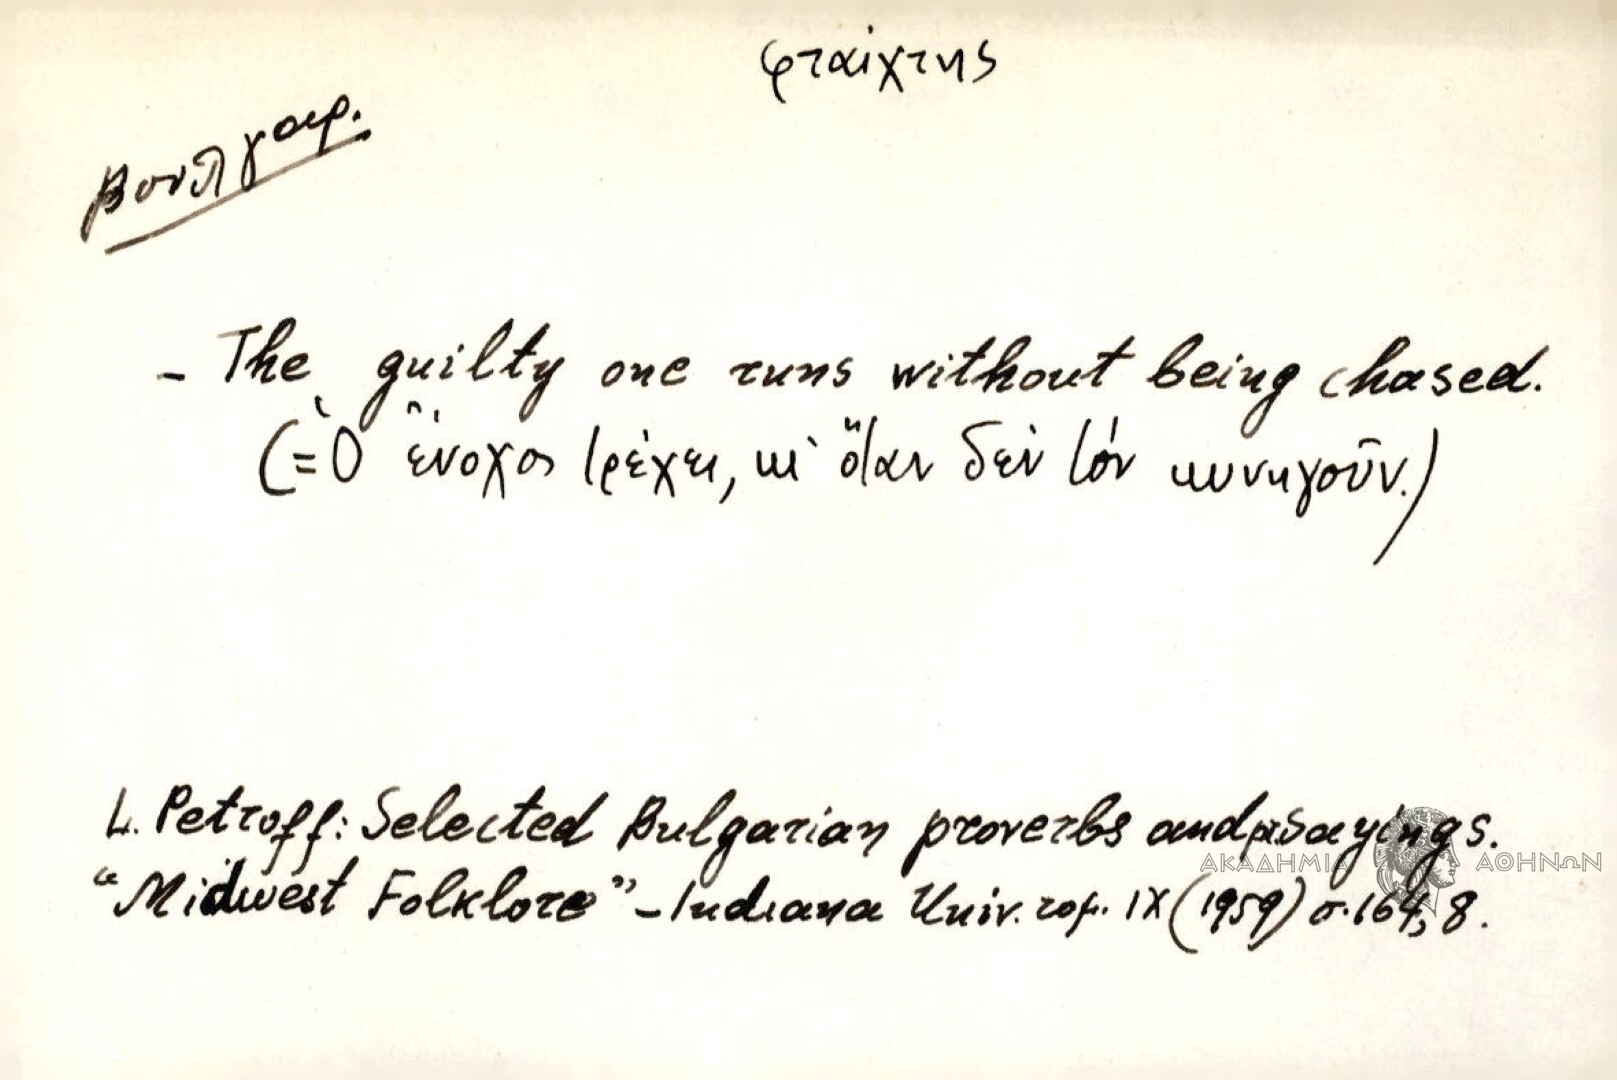 φταίχτης
Βουλγαρ.
- The guilty one runs without being chased.
(= Ὁ ἔνοχος τρέχει, κι' ὅταν δὲν τὸν κυνηγοῦν.)
L. Petroff: Selected Bulgarian proverbs and sayings.
"Midwest Folklore" - Indiana Univ. τομ. IX (1959) σ. 164, 8.
ΑΚΑΔΗΜΙΑ ΑΘΗΝΩΝ